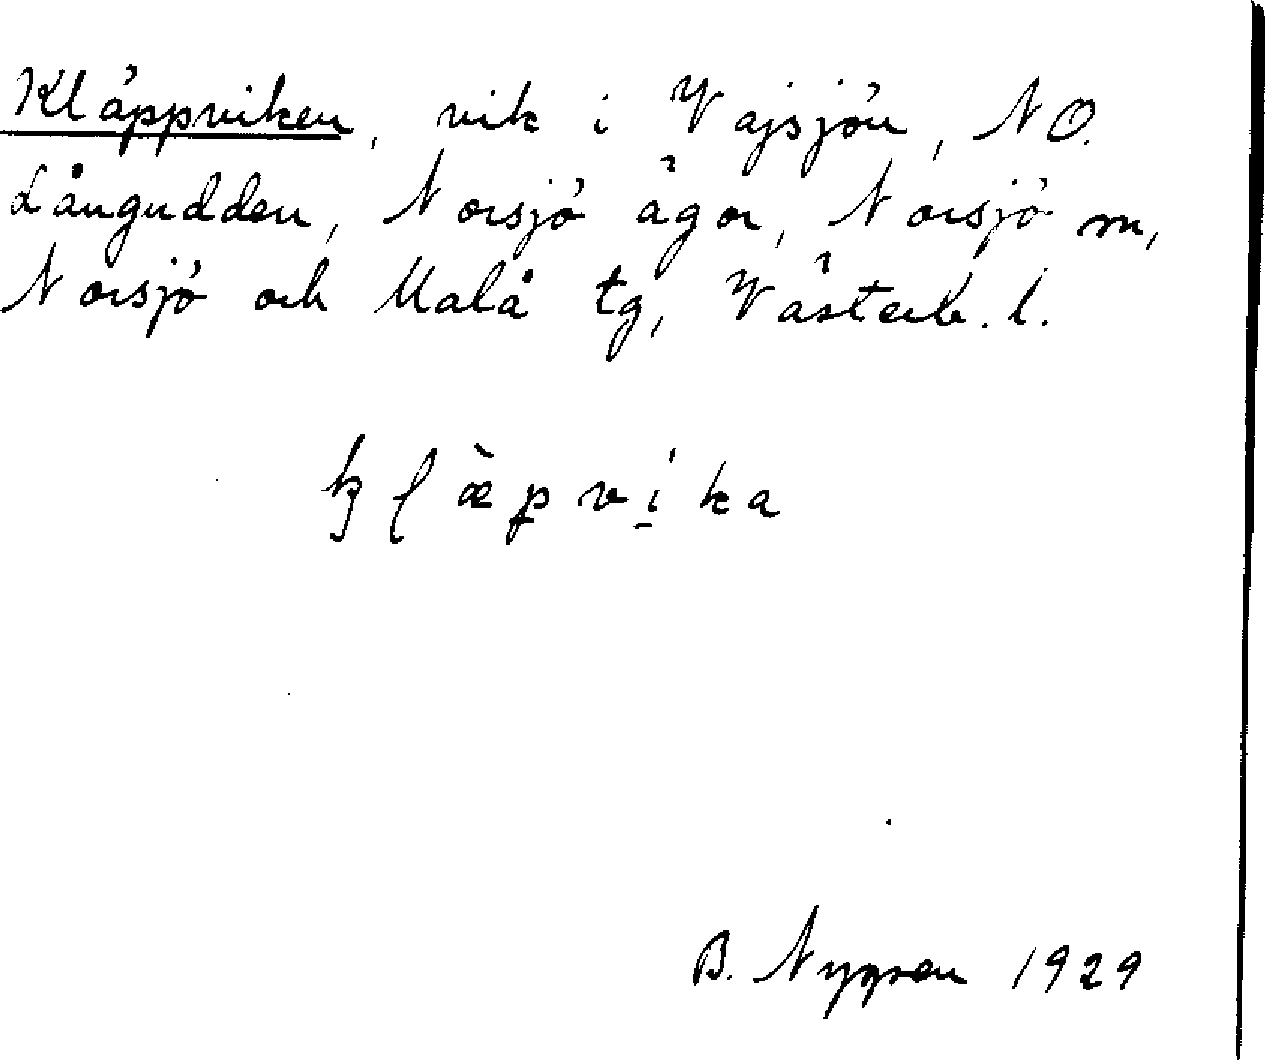 Kläppviken, vik i Vajsjön, NO.
Långudden, Norsjö ägor, Norsjö sn,
Norsjö och Malå tg, Västerb. l.
kl̀æpvika
B. Nygren 1929